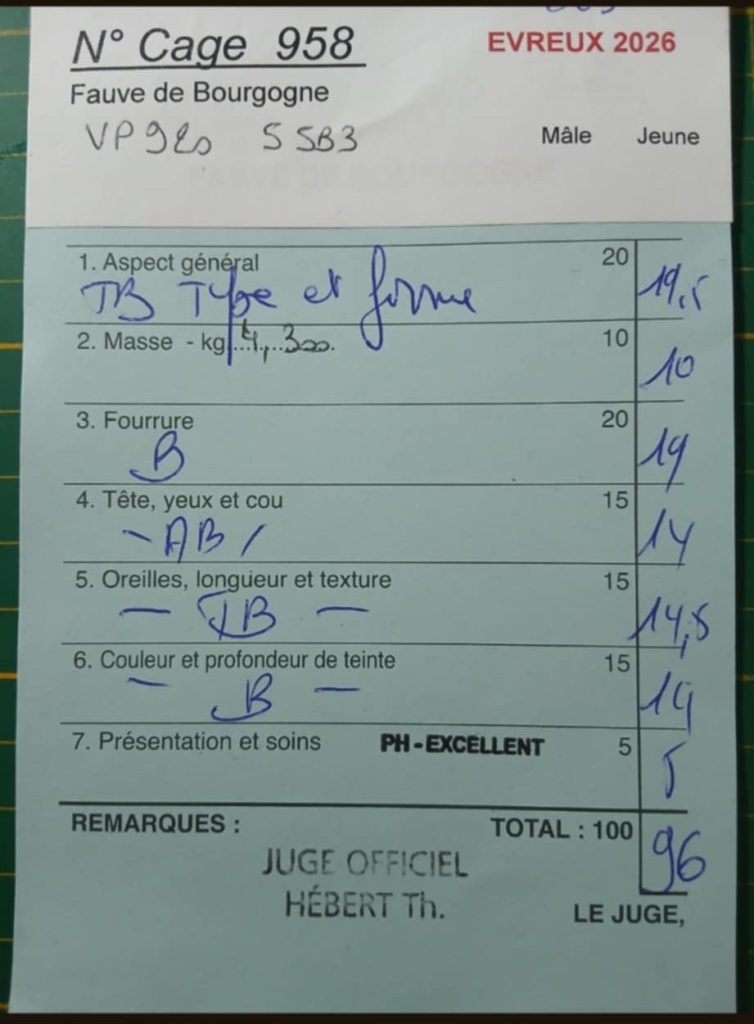 N° Cage 958
EVREUX 2026
Fauve de Bourgogne
Mâle Jeune
1. Aspect général 20 19,5
TB Type et forme
2. Masse - kg 4,300. 10 10
3. Fourrure 20 19
B
4. Tête, yeux et cou 15 14
- AB /
5. Oreilles, longueur et texture 15 14,5
- TB -
6. Couleur et profondeur de teinte 15 14
- B -
7. Présentation et soins PH-EXCELLENT 5 5
REMARQUES : TOTAL : 100 96
JUGE OFFICIEL
HÉBERT Th.
LE JUGE,